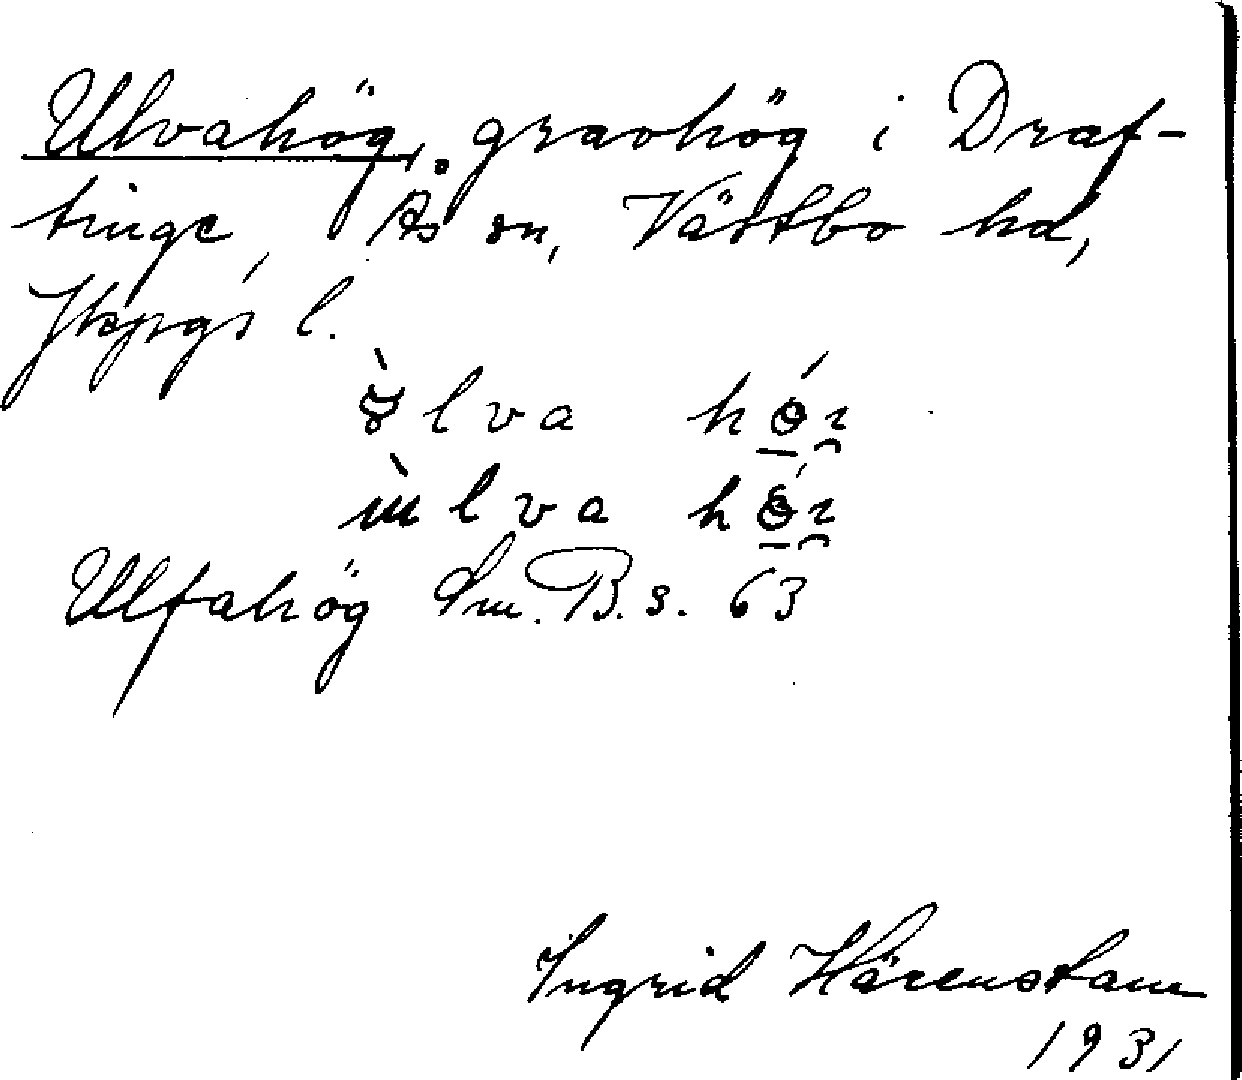 Ulvahög, gravhög i Draf-
tinge, Ås sn, Västbo hd,
Jkpgs l.
lva
lva
Ulfahög Sm. B. s. 63
Ingrid Härenstam
1931